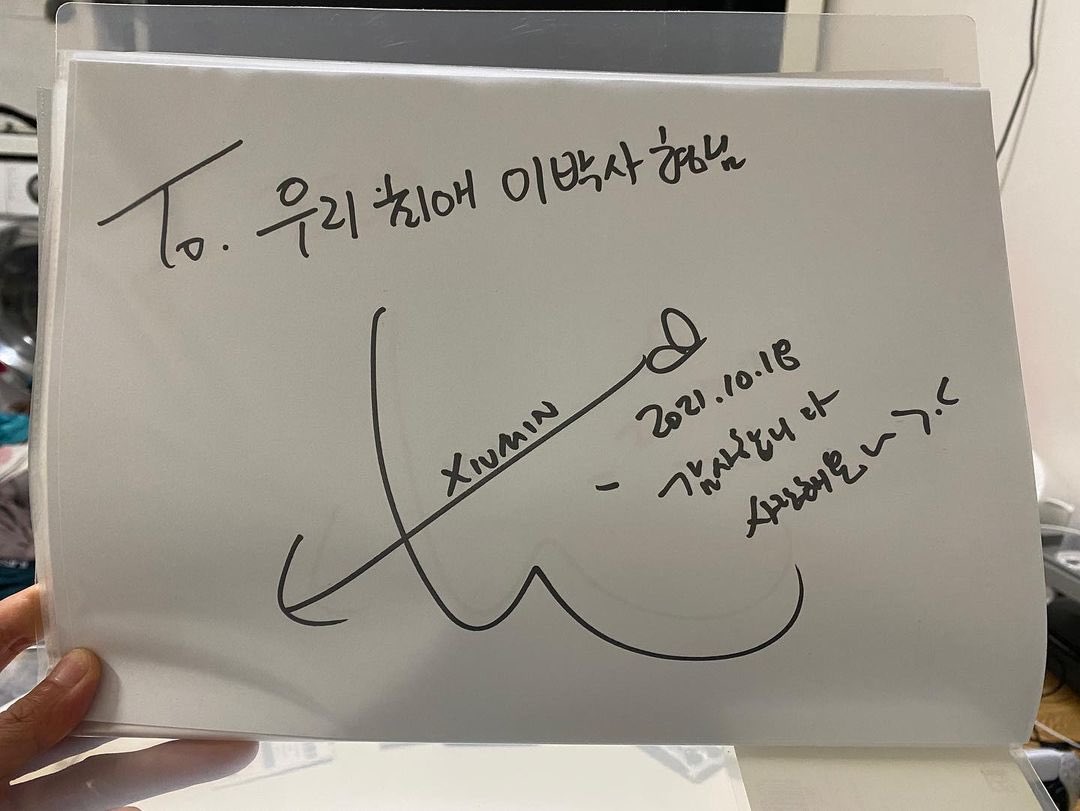 To. 우리 최애 이박사 형님
XIUMIN
2021.10.18
- 감사합니다
사랑해용~ >.<